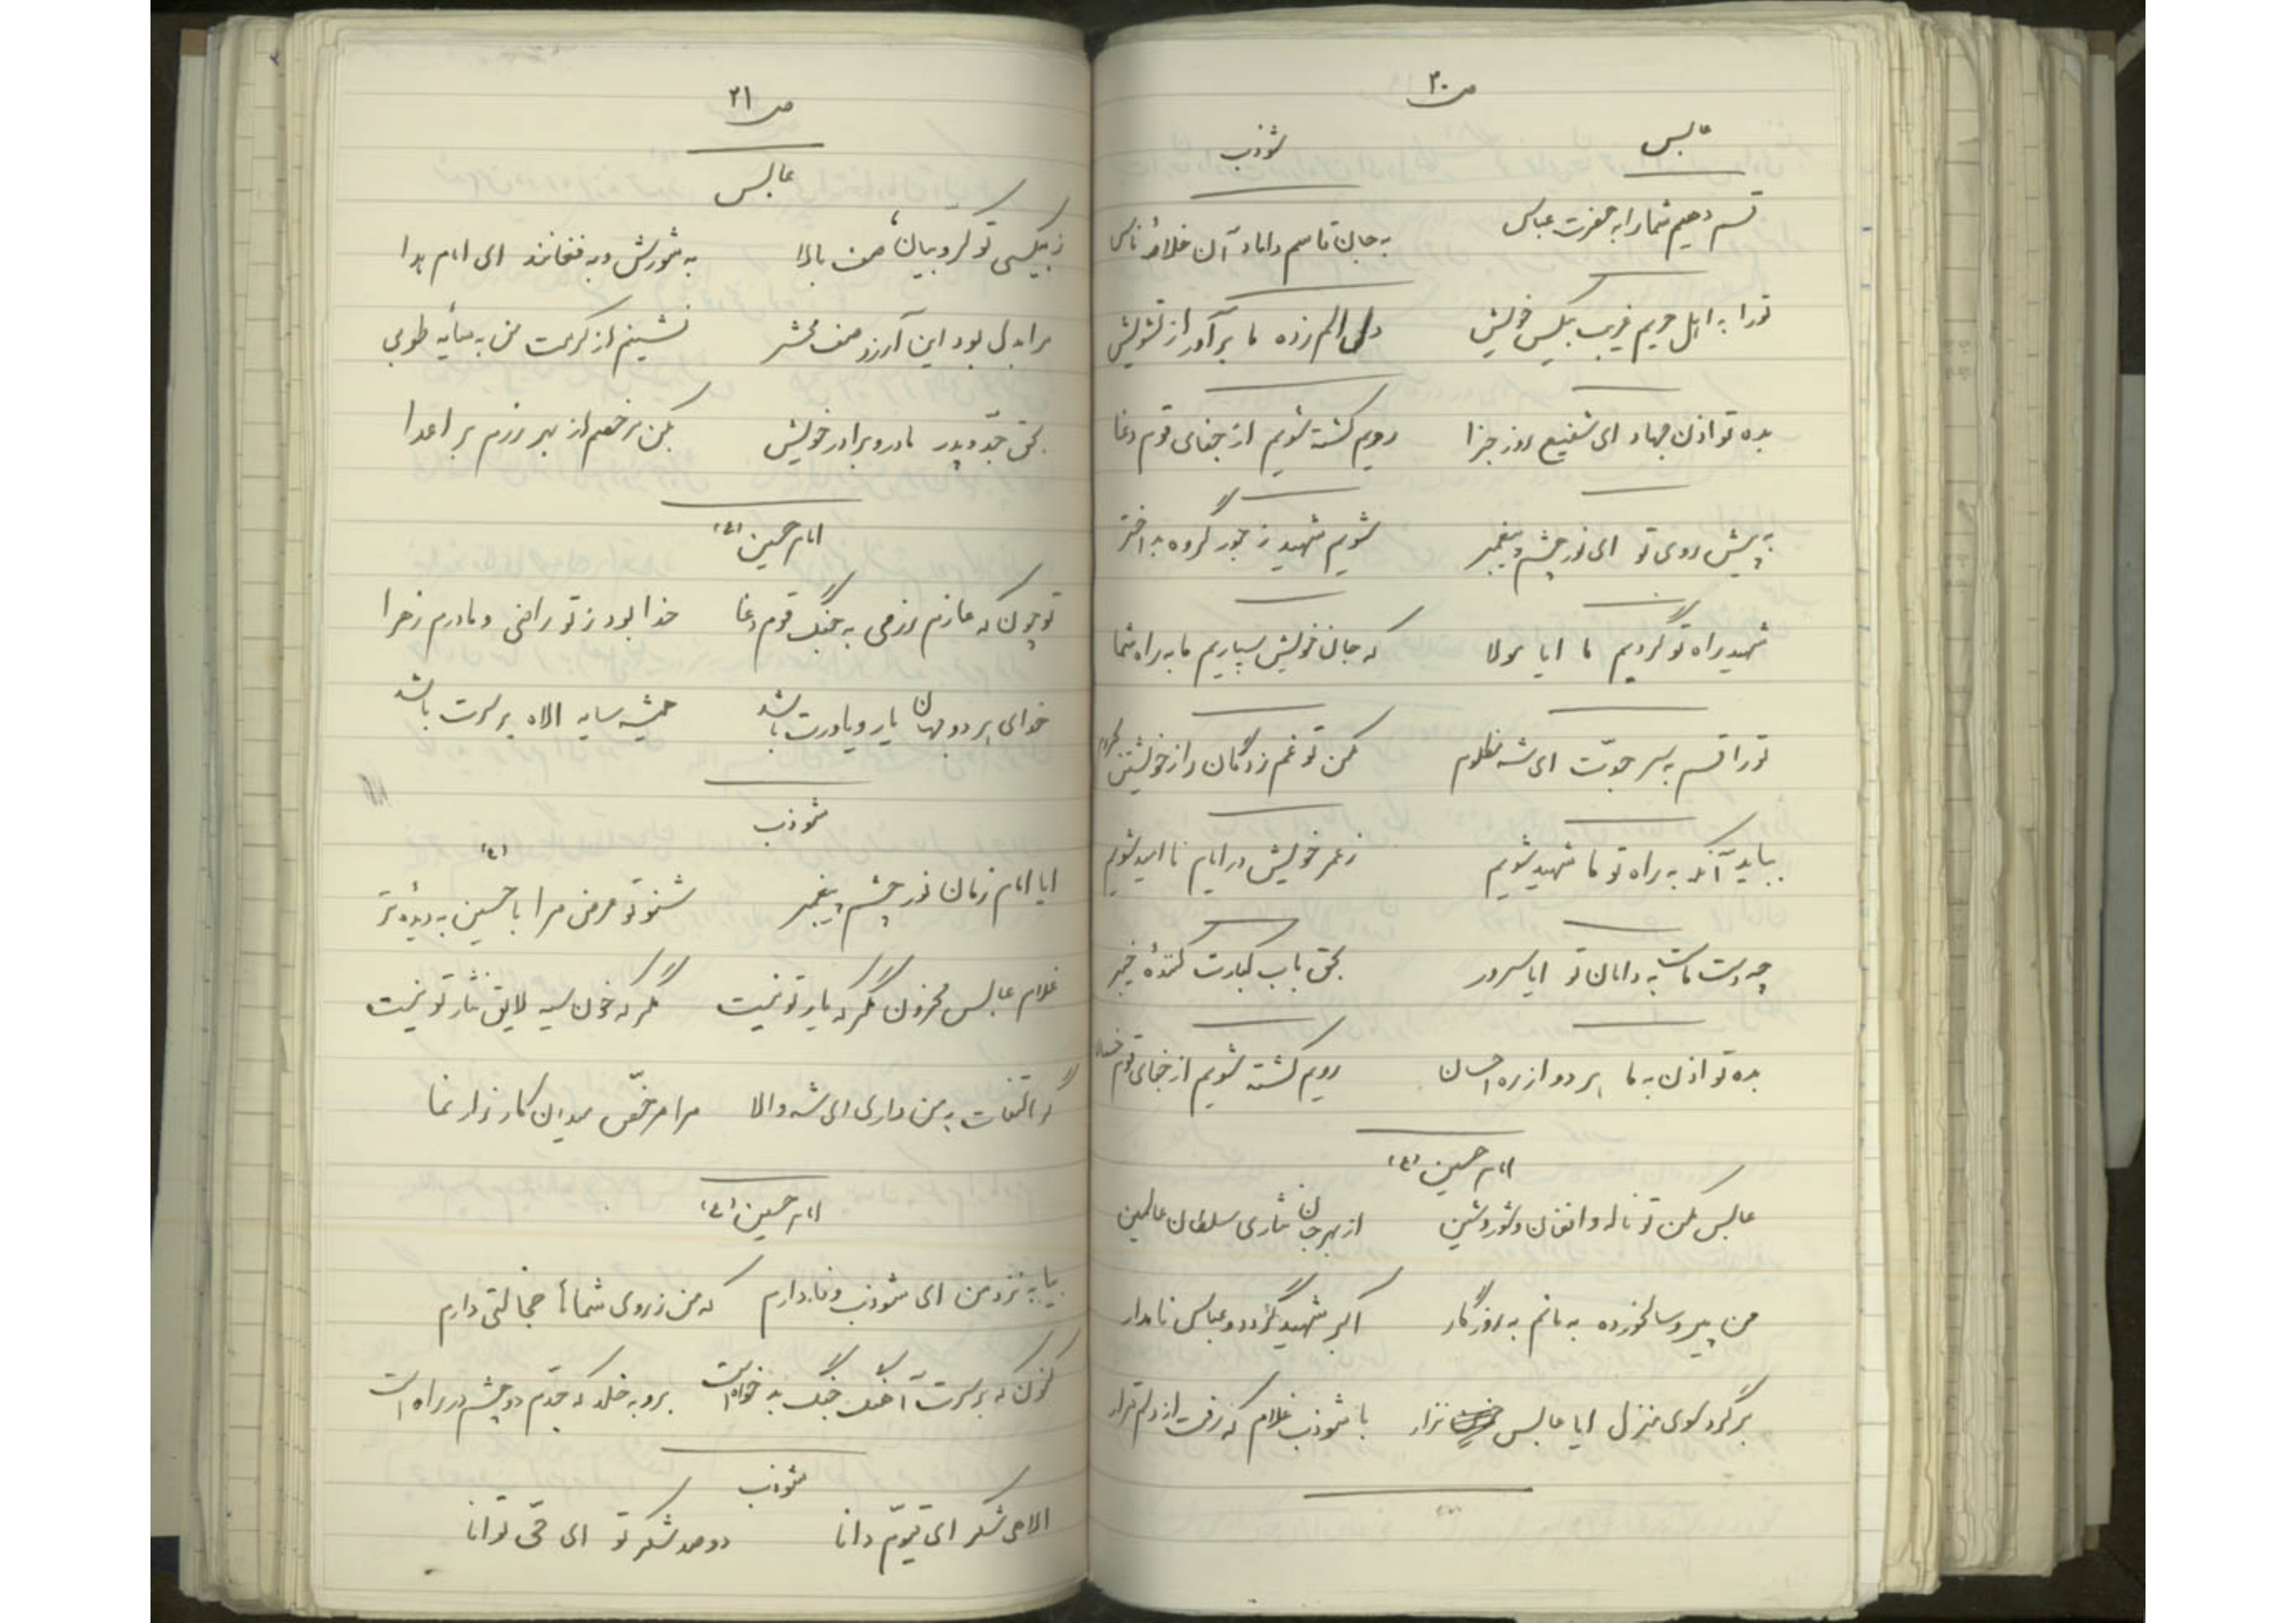 ص ۲۰
عابس شوذب
قسم دهیم شما را به حضرت عباس به جان قاسم داماد آن خلاصۀ ناس
تو را به اهل حریم غریب بیکس خویش دل الم زده ما برآور از تشویش
بده تو اذن جهاد ای شفیع روز جزا رویم کشته شویم از جفای قوم دغا
به پیش روی تو ای نور چشم پیغمبر شویم شهید ز جور گروه بد اختر
شهید راه تو گردیم ما ایا مولا که جان خویش سپاریم ما به راه شما
تو را قسم به سر جدّت ای شه مظلوم مکن تو غم زدگان را ز خویشتن محروم
بباید آنکه به راه تو ما شهید شویم ز عمر خویش در ایام نا امید شویم
چه دست ماست به دامان تو ایا سرور بحق باب کبارت کنندۀ خیبر
بده تو اذن به ما هر دو از ره احسان رویم کشته شویم از جفای قوم خسان
امام حسین (ع)
عابس مکن تو ناله و افغان و شور و شین از بهر جان نثاری سلطان عالمین
من پیر و سالخورده به ماتم به روزگار اکبر شهید گردد و عباس نامدار
برگرد سوی منزل ایا عابس نزار با شوذب غلام که رفت از دلم قرار
ص ۲۱
عابس
ز بیکسی تو کروبیان صف بالا به شورش و به فغانند ای امام هدا
مرا به دل بود این آرزو صف محشر نشینم از کرمت من به سایه طوبی
بحق جدّ و پدر مادر و برادر خویش بکن مرخصم از بهر رزم بر اعدا
امام حسین (ع)
تو چون که عازم رزمی به جنگ قوم دغا خدا بود ز تو راضی و مادرم زهرا
خدای هر دو جهان یار و یاورت باشد همیشه سایه الاه بر سرت باشد
شوذب
ایا امام زمان نور چشم پیغمبر شنو تو عرض مرا یا حسین (ع) به دیدۀ تر
غلام عابس محزون مگر که یار تو نیست مگر که خون سیه لایق نثار تو نیست
گر التفات به من داری ای شه والا مرا مرخّص میدان کارزار نما
امام حسین (ع)
بیا به نزد من ای شوذب وفادارم که من ز روی شماها خجالتی دارم
کنون که بر سرت آهنگ جنگ بدخواه است برو به خلد که جدّم دو چشم در راه است
شوذب
الاهی شکر ای قیوّم دانا دو صد شکر تو ای حّی توانا